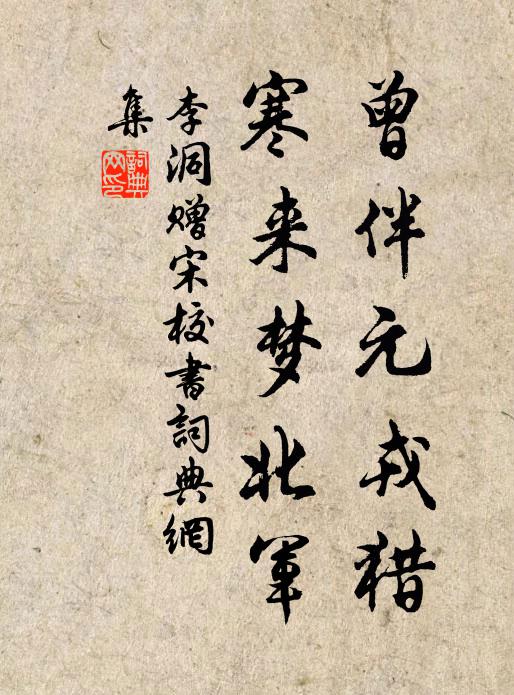 曾伴元戎猎
寒来梦北军
李洞赠宋校書詞典網
集
詞典
网印